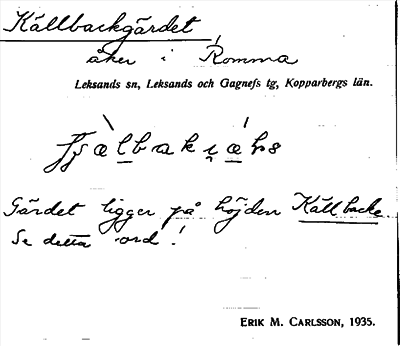 Källbackgärdet
åker i Romma
Leksands sn, Leksands och Gagnefs tg, Kopparbergs län.
Gärdet ligger på höjden Källbacke.
Se detta ord!
ERIK M. CARLSSON, 1935.